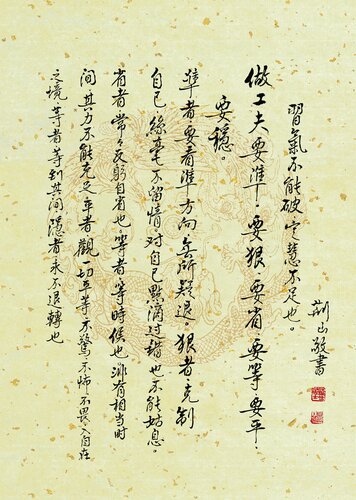 習氣不能破定慧不足也。
做工夫要準．要狠．要省．要等．要平．
要穩。
準者要看準方向無所疑退。狠者克制
自己絲毫不留情對自己點滴過錯也不能姑息。
省者常常反躬自省也。等者等時候也非有相當時
間其力不能充足。平者觀一切平等不驚不怖不畏入自在
之境等者等到其間。隱者永不退轉也
荊山敬書